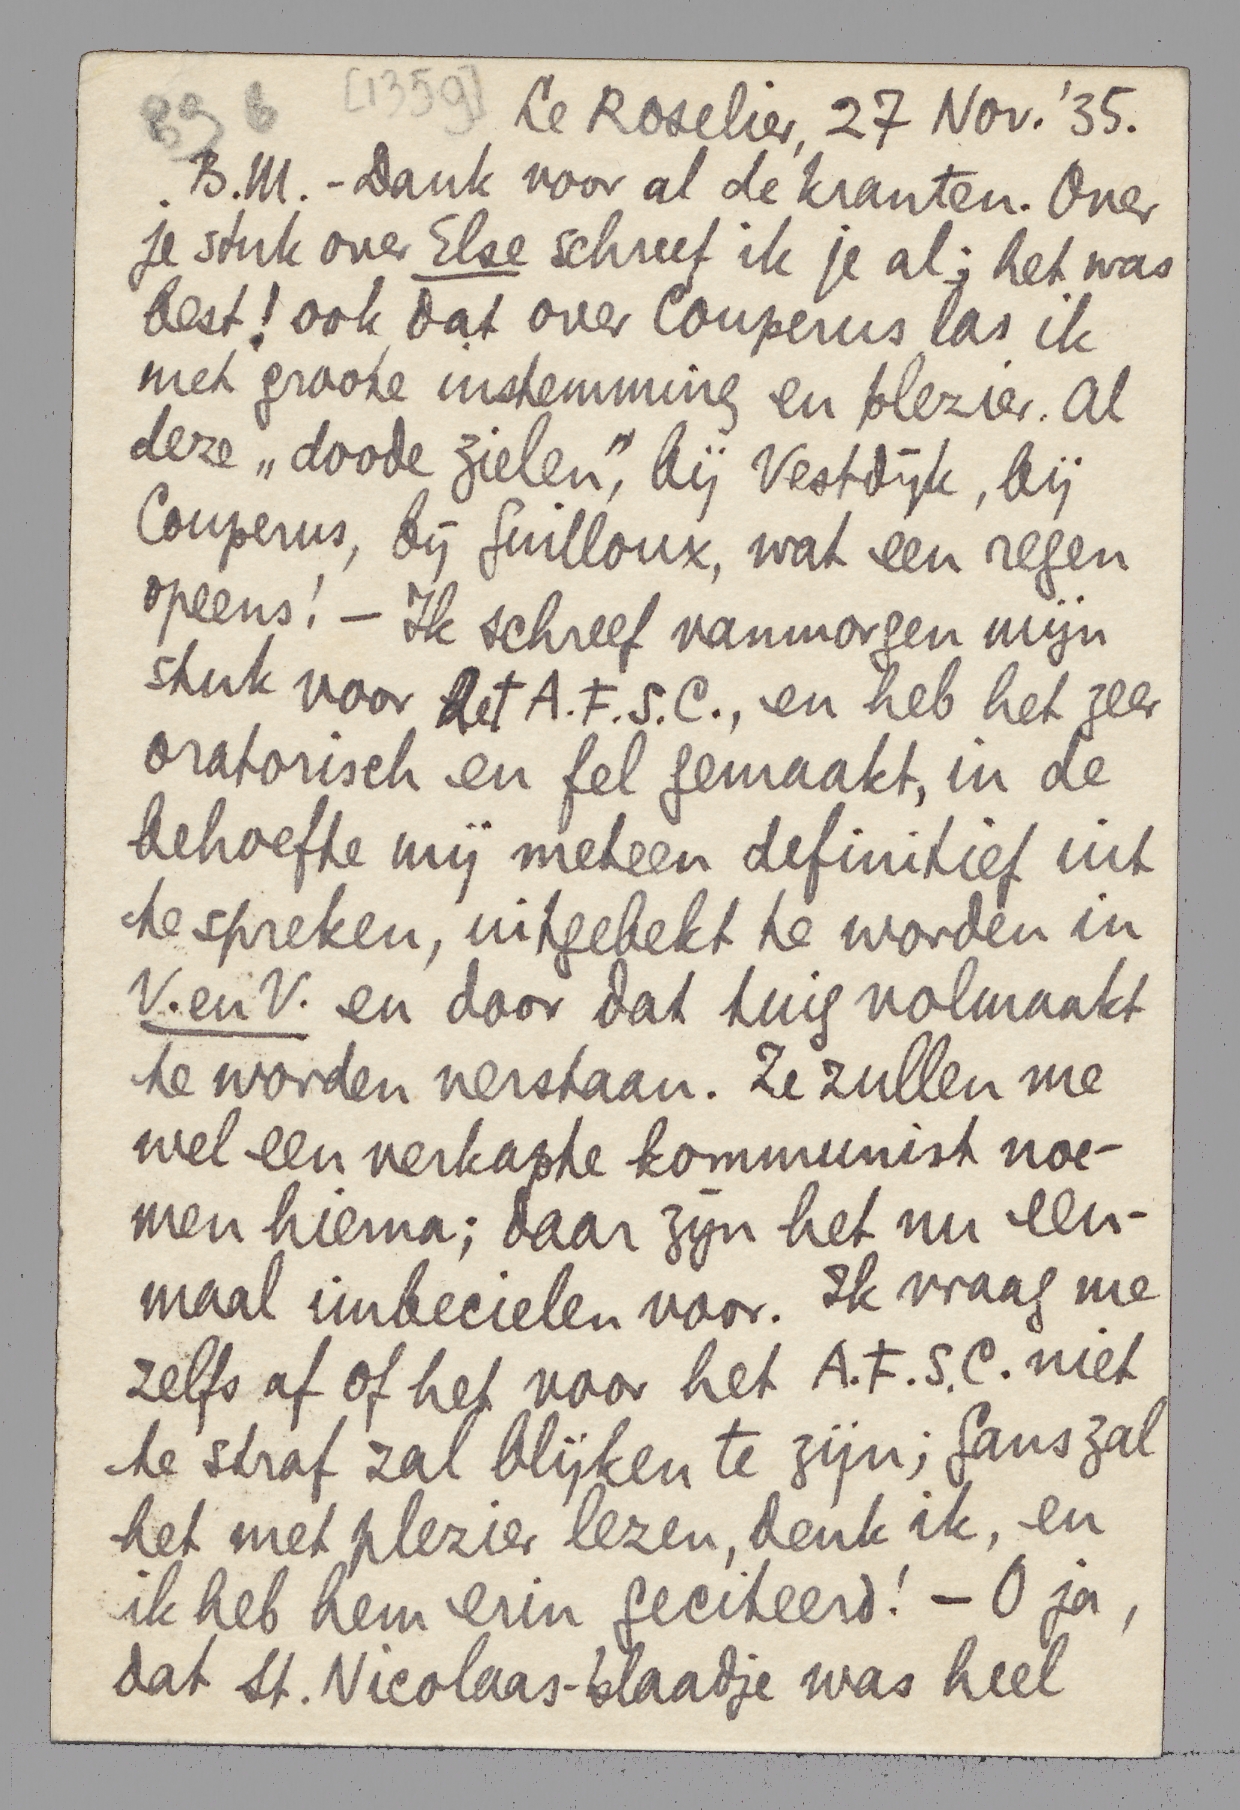 B9 6 [1359]
Le Roselier, 27 Nov. '35.
B.M. - Dank voor al de kranten. Over
je stuk over Else schreef ik je al; het was
best! ook dat over Couperus las ik
met groote instemming en plezier. Al
deze „doode zielen", bij Vestdijk, bij
Couperus, bij Guilloux, wat een regen
opeens! — Ik schreef vanmorgen mijn
stuk voor het A.F.S.C., en heb het zeer
oratorisch en fel gemaakt, in de
behoefte mij meteen definitief uit
te spreken, uitgebekt te worden in
V. en V. en door dat tuig volmaakt
te worden verstaan. Ze zullen me
wel een verkapte kommunist noe-
men hierna; daar zijn het nu een-
maal imbecielen voor. Ik vraag me
zelfs af of het voor het A.F.S.C. niet
te straf zal blijken te zijn; Gans zal
het met plezier lezen, denk ik, en
ik heb hem erin geciteerd! — O ja,
dat St. Nicolaas-blaadje was heel